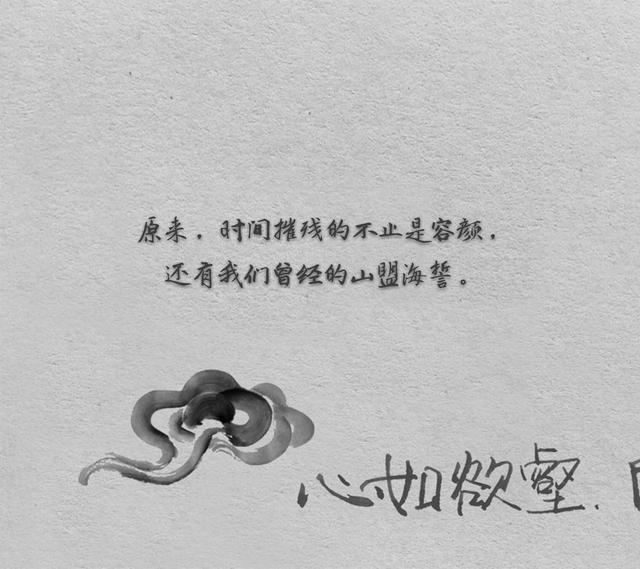 原来，时间摧残的不止是容颜，
还有我们曾经的山盟海誓。
心如欲壑.